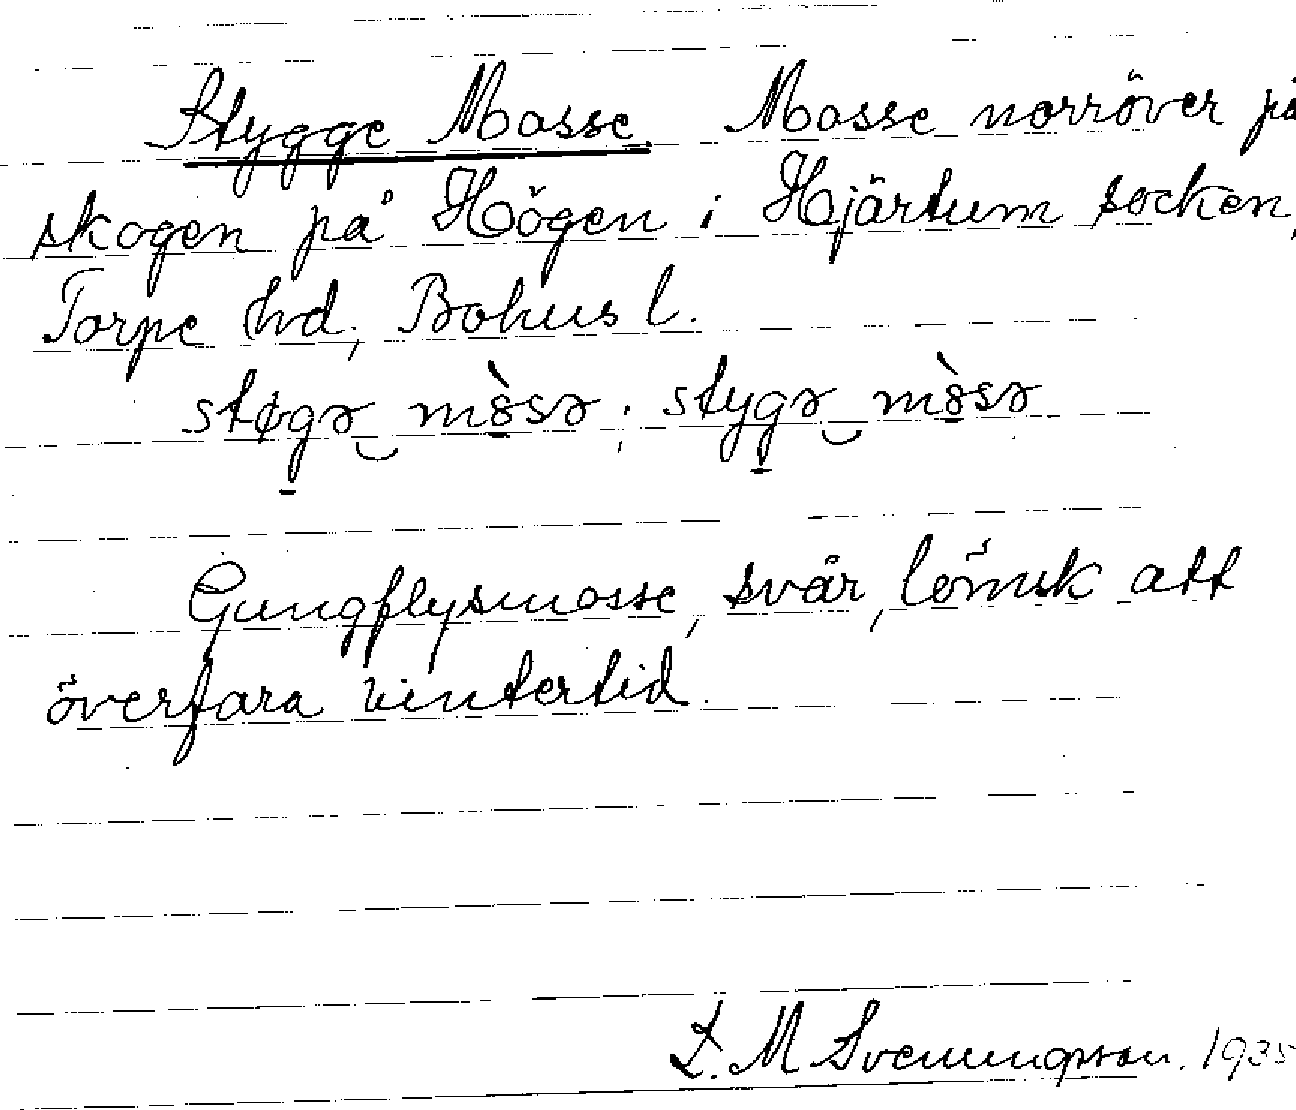 Stygge Mosse Mosse norröver på
skogen på Högen i Hjärtum socken,
Torpe hd, Bohusl.
støgə mòsə; stygə mòsə
Gungflysmosse, svår, lömsk att
överfara vintertid.
L. M Svenungsson. 1935